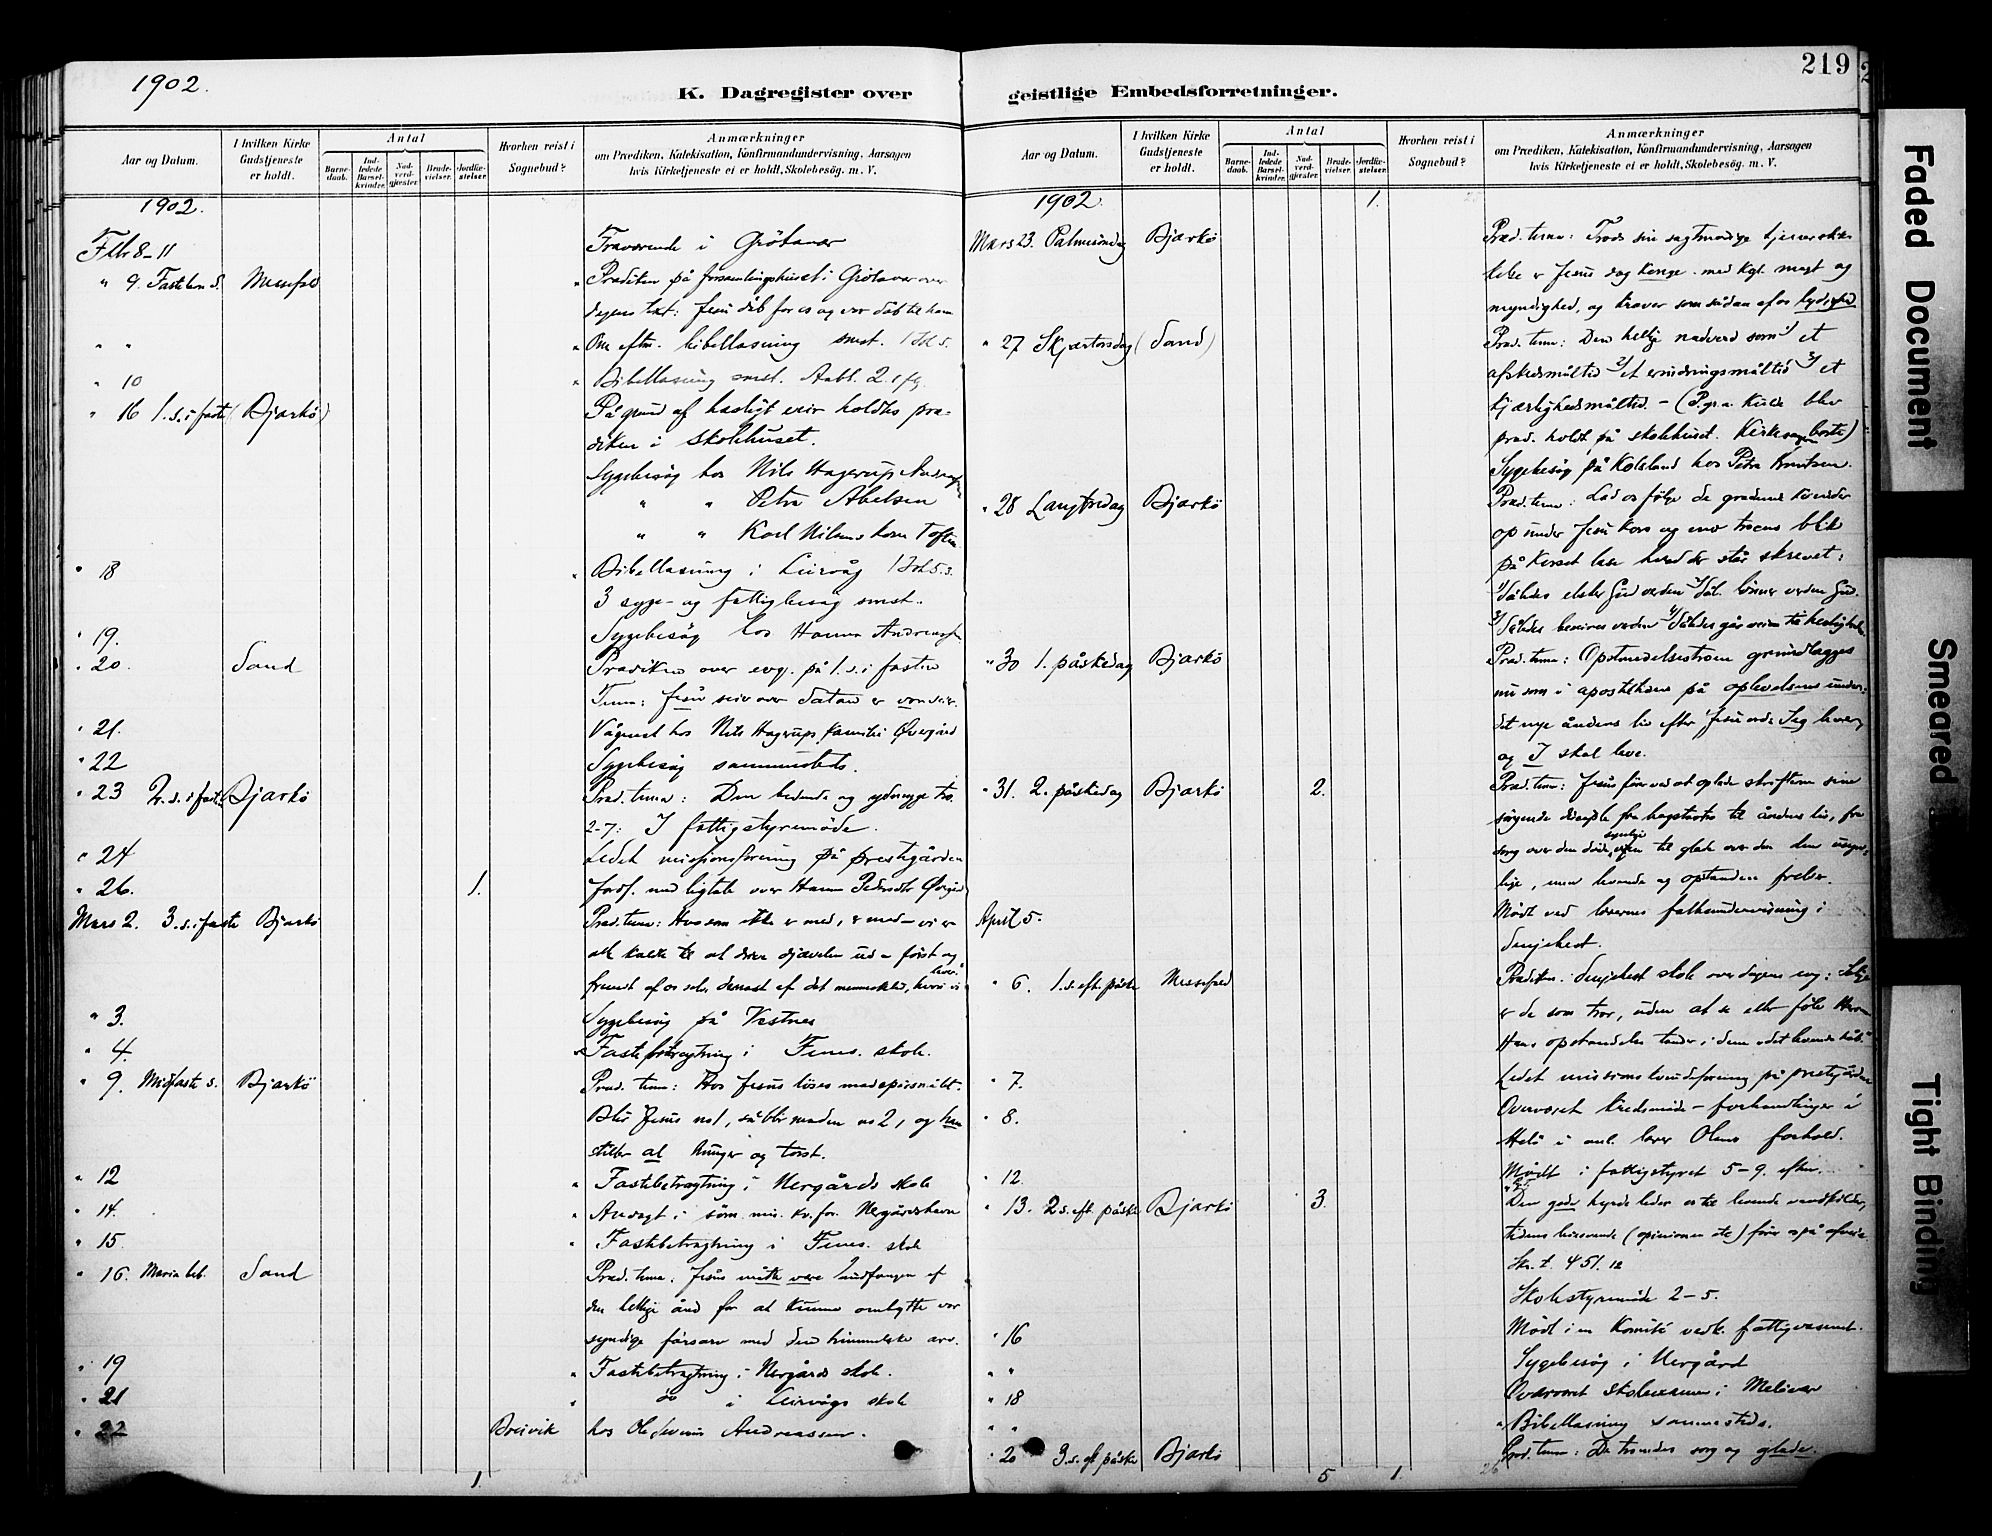 1902.
K. Dagregister over
Aar og Datum.
I hvilken Kirke Gudstjeneste er holdt.
Antal
Barnedaab.
Indledede Barselkvinder.
Nadverdgjester.
Brudevielser.
Jordfæstelser.
Hvorhen reist i Sognebud?
Anmærkninger
om Prædiken, Katekisation, Konfirmandundervisning, Aarsagen
hvis Kirketjeneste ei er holdt, Skolebesög. m. V.
1902.
Febr 8-11 Fraværende i Grötavær
" 9. Fastelavn s. Messefald " Prædiken på forsamlingshuset i Grötavær over
dagens text: Jesu dåb for os og vor dåb til ham
" " " Om eftm. bibellæsning smst. 1 Joh 5.
" 10 " Bibellæsning smst. Aab. 2. 1 fg.
" 16 1. s. i faste (Bjarkö) På grund af hæsligt veir holdtes præ-
diken i skolehuset.
Sygebesög hos Nils Hagerup
" " Petra Abelsen
" " Karl Nilsens kone Toften
" 18 " Bibellæsning i Leirvåg 1 Joh 5.
3 syge- og fattigbesög smst.
" 19. Sygebesög hos Hanna
" 20. Sand Prædiken over evg. på 1. s. i fasten
Tema: Jesu seir over Satan er vor seir.
" 21. Vågenat hos Nils Hagerups familie Øvergård
" 22 Sygebesög sammesteds.
" 23 2. s. i faste Bjarkö Præd. tema: Den bedende og ydmyge tro.
2-7: I fattigstyremöde.
" 24 Ledet missionsforening på prestegården
" 26. 1. Jordf. med ligtale over Hanna Øvergård
Mars 2. 3. s. i faste Bjarkö Præd. tema: Hvo som ikke er med, er mod vi er
alle kaldt til at drive djævelen ud - först og
fremst af os selv dernæst af det menneskeliv, hvori vi lever.
" 3. Sygebesög på Vestnes
" 4. " Fastebetragtning i Fenes skole.
" 9. Midfaste s. Bjarkö Præd. tema: Hos Jesus löses madspörsmålet.
Blir Jesus no 1, så blir maden no 2, og han
stiller al hunger og törst.
" 12 " Fastebetragtning i Nergårds skole
" 14. " Andagt i
" 15. " Fastebetragtning i Fenes skole
" 16. Mariæ beb. Sand Præd. tema: Jesus måtte være undfangen af
den hellige ånd for at kunne ombytte vor
syndige med den himmelske arv.
" 19 " Fastebetragtning i Nergårds skole.
" 21 " do i Leirvågs skole
" 22 Breivik hos Ole Severin Andreassen.
1.
219
geistlige Embedsforretninger.
Aar og Datum.
I hvilken Kirke Gudstjeneste er holdt.
Antal
Barnedaab.
Indledede Barselkvinder.
Nadverdgjester.
Brudevielser.
Jordfæstelser.
Hvorhen reist i Sognebud?
Anmærkninger
om Prædiken, Katekisation, Konfirmandundervisning, Aarsagen
hvis Kirketjeneste ei er holdt, Skolebesög. m. V.
1902. 1.
Mars 23. Palmesöndag Bjarkö Præd. tema: Trods sin sagtmodige tjenerskik-
kelse er Jesus dog konge med kgl. magt og
myndighed, og kræver som sådan af os lydighed
" 27 Skjærtorsdag (Sand) Præd. tema: Den hellige nadverd som 1) et
afskedsmåltid 2) et erindringsmåltid 3) et
kjærlighedsmåltid. - (P. gr. a. kulde blev
præd. holdt på skolehuset. Kirkesangeren borte)
Sygebesög på Kolsland hos Petra Knutsen.
" 28 Langfredag Bjarkö Præd. tema: Lad os fölge de grædende kvinder
op under Jesu kors og med troens blik
på korset læse hvad der står skrevet:
1) Således elsker Gud verden 2) Såled. lönner verden Gud.
3) Således beseires verden 4) Således går veien til herligheden.
" 30 1. påskedag Bjarkö Præd. tema: Opstandelsestroen grundlægges
nu som i apostlernes på oplevelsens under:
det nye åndens liv efter Jesu ord: Jeg lever
og I skal leve.
" 31. 2. påskedag Bjarkö 2. Præd. tema: Jesus förer ved at oplade skrifterne sine
sörgende disciple fra bogstaven til åndens liv, fra
sorg over den döde, synlige til glæde over den usyn-
lige, men levende og opstandne frelser.
April 5. Mödt ved lærernes i
Senjehest.
" 6. 1. s. eft. påske Messefald Prædiken i Senjehest skole over dagens evg: Salige
er de som tror, uden at se eller föle Herren
Hans opstandelse tænder i dem et levende håb.
" 7. Ledet missionskvindeforening på prestegården
" 8. Overværet kredsmöde - forhandlinger i
i anl. lærer Olsens forhold.
" 12. Mödt i fattigstyret 5-9. eftm.
" 13. 2 s. eft. påske Bjarkö 3. Den gode hyrde leder os til levende vandkilder,
tidens (opinionen etc) förer os på afveie
Skr. t. 4 Sl. 12
Skolestyremöde 2-5.
" 16 Mödt i en Komité vedk. fattigvæsenet.
" " Sygebesög i Nergård
" 18 Overværet skoleexamen i Melvær
" " " Bibellæsning sammesteds.
" 20 3. s. eft påske Bjarkö Præd. tema: De troendes sorg og glæde.
5 1. 26
Faded Document
Smeared
Tight Binding